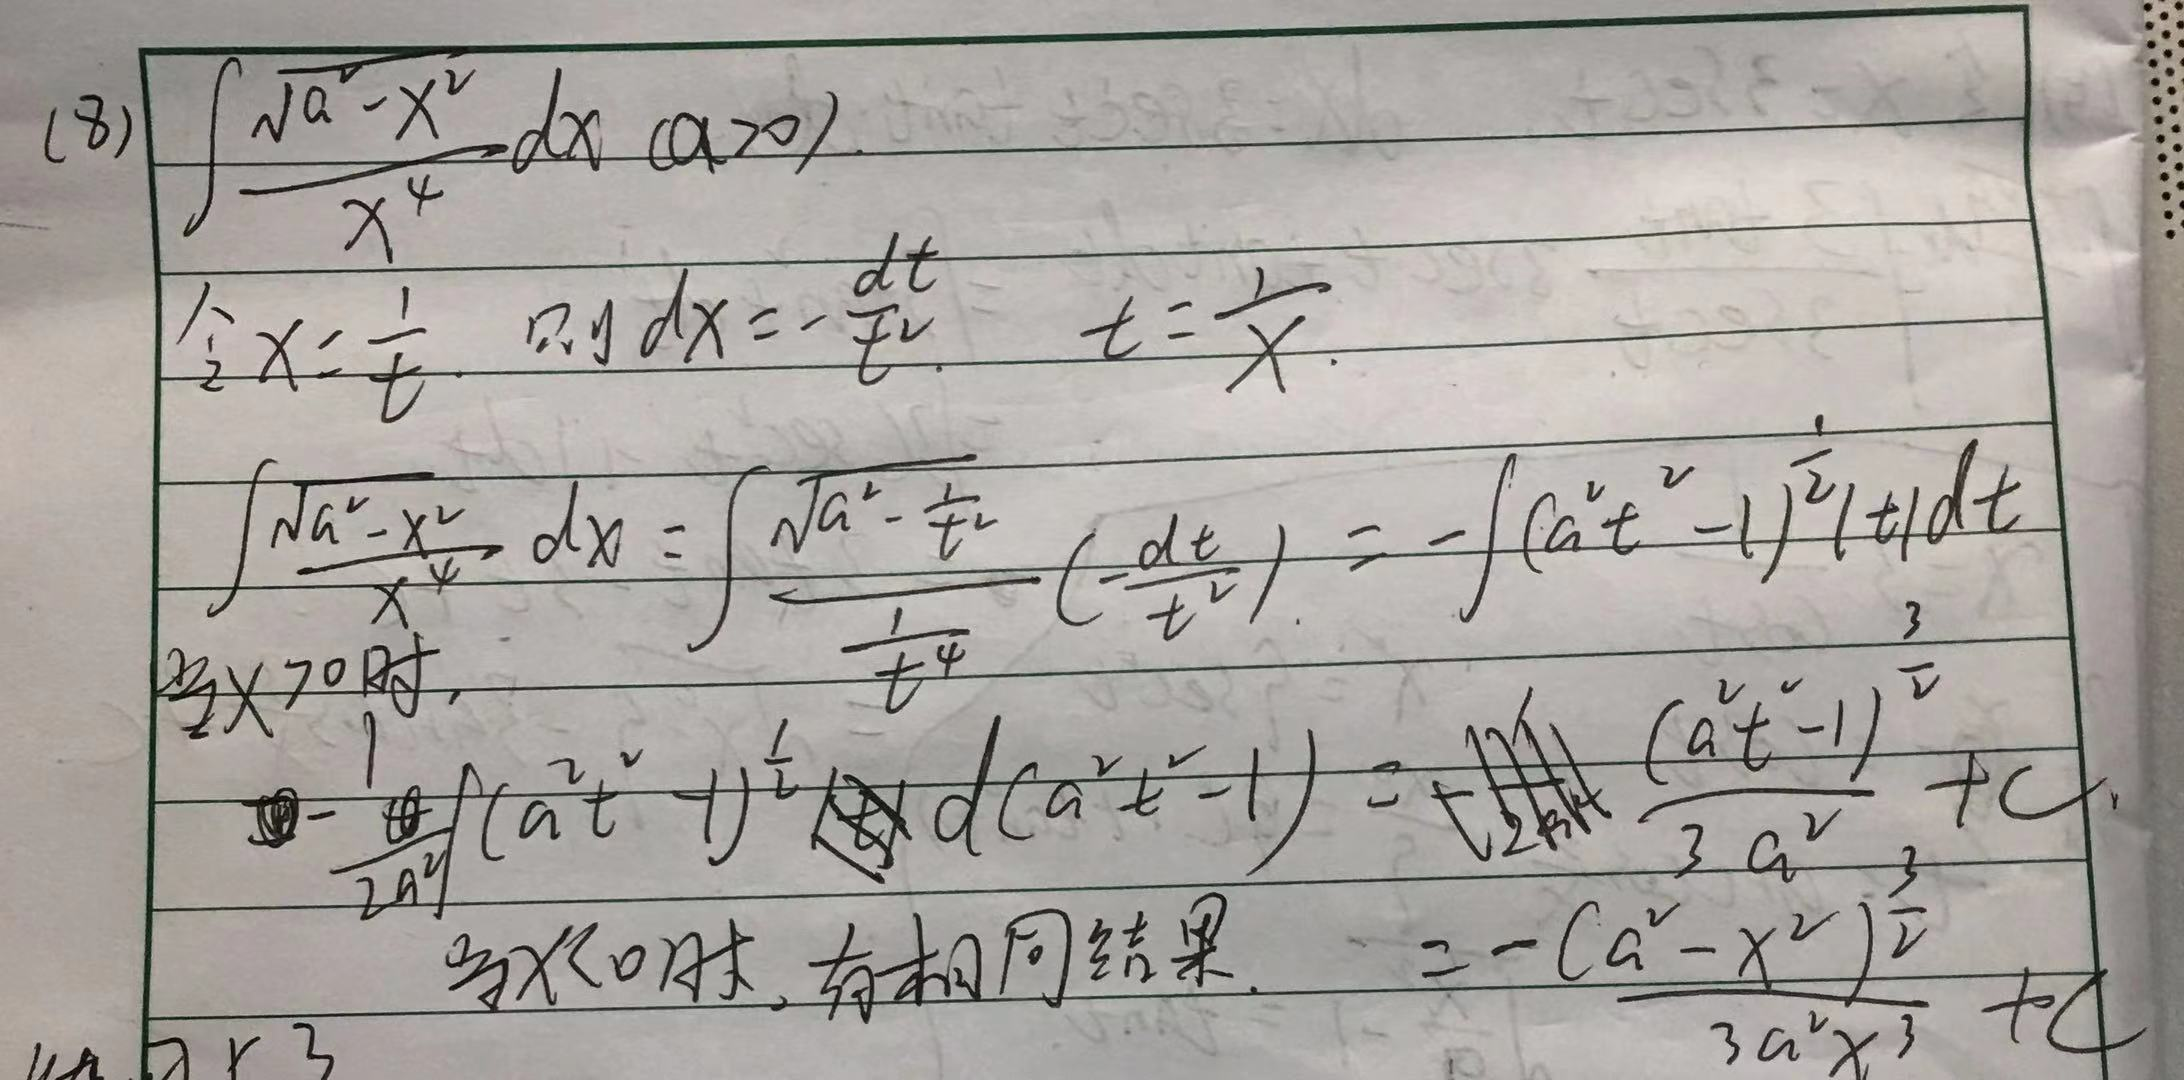 (8) ∫ √(a²-x²) / x⁴ dx (a>0).
令 x = 1/t. 则 dx = - dt/t². t = 1/x.
∫ √(a²-x²) / x⁴ dx = ∫ √(a² - 1/t²) / (1/t⁴) (-dt/t²). = -∫ (a²t²-1)^(1/2) |t| dt
当x>0时,
- 1/(2a²) ∫ (a²t²-1)^(1/2) d(a²t²-1) = - (a²t²-1)^(3/2) / 3a² + C.
当x<0时, 有相同结果. = - (a²-x²)^(3/2) / 3a²x³ + C